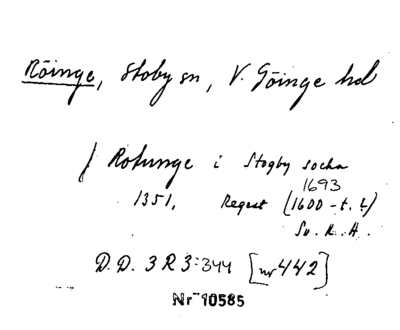 Röinge, Stoby sn, V. Göinge hd
J Rotunge i Stogby socken
1693
1351, Regest (1600-t. t.)
Sv. R. A.
D.D. 3 R 3:344 [nr 442]
Nr 10585